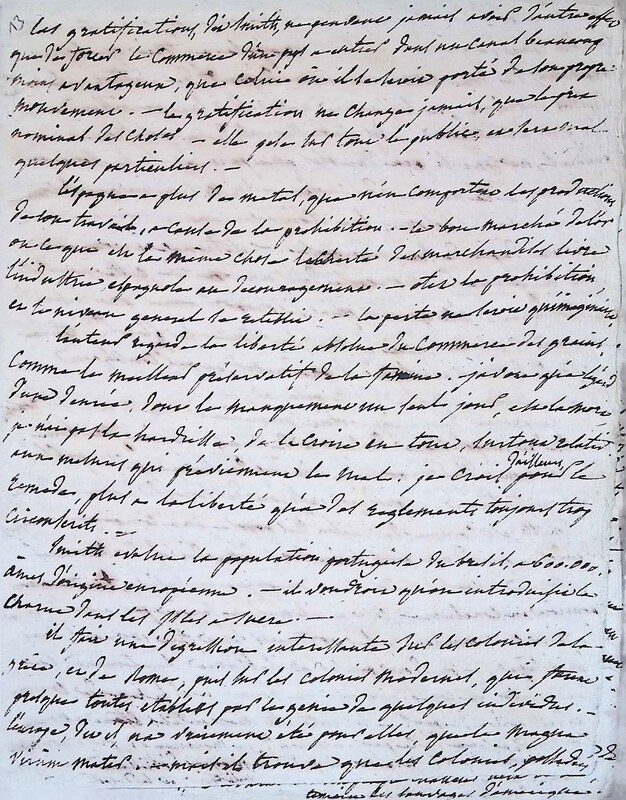 13
les gratifications, dit Smith, ne peuvent jamais avoir d'autre effet
que de forcer le Commerce d'un pays a entrer dans un canal beaucoup
moins avantageux, que celui où il se seroit porté de son propre
mouvement. — la gratification ne change jamais, que le prix
nominal des choses. — elle pese sur tout le public, en sens mal
quelques particuliers. —
l'espagne a plus de metal, que n'en comportent les productions
de son travail, a cause de la prohibition. — le bon marché de l'or
ou ce qui est la même chose la cherté des marchandises livre
l'industrie espagnole au decouragement. — oter la prohibition,
et le niveau general se retablit. — la perte ne seroit qu'imaginaire.
l'auteur regarde la liberté absolue du Commerce des grains,
Comme le meilleur préservatif de la famine. j'avoue que
d'une denrée, dont le manquement un seul jour, est la mort
je n'ai pas la hardiesse de le croire en tout, surtout relativ
aux mesures que préviennent le mal. je crois d'ailleurs, pour le
remede, plus a la liberté qu'a des reglements toujours trop
circonscrits. —
Smith evalue la population portugaise du bresil, a 600.000.
âmes d'origine européenne. — il voudroit qu'on introduisît la
charrue dans les isles a sucre. —
il fait une digression interessante sur les colonies de la
grèce, et de Rome, puis sur les colonies modernes, que furent
presque toutes établies par le genie de quelques individus. —
l'europe, dit il n'a vraiment été pour elles, que la magna
virûm mater. — mais il trouve que les Colonies,
temoin les sauvages d'amerique.